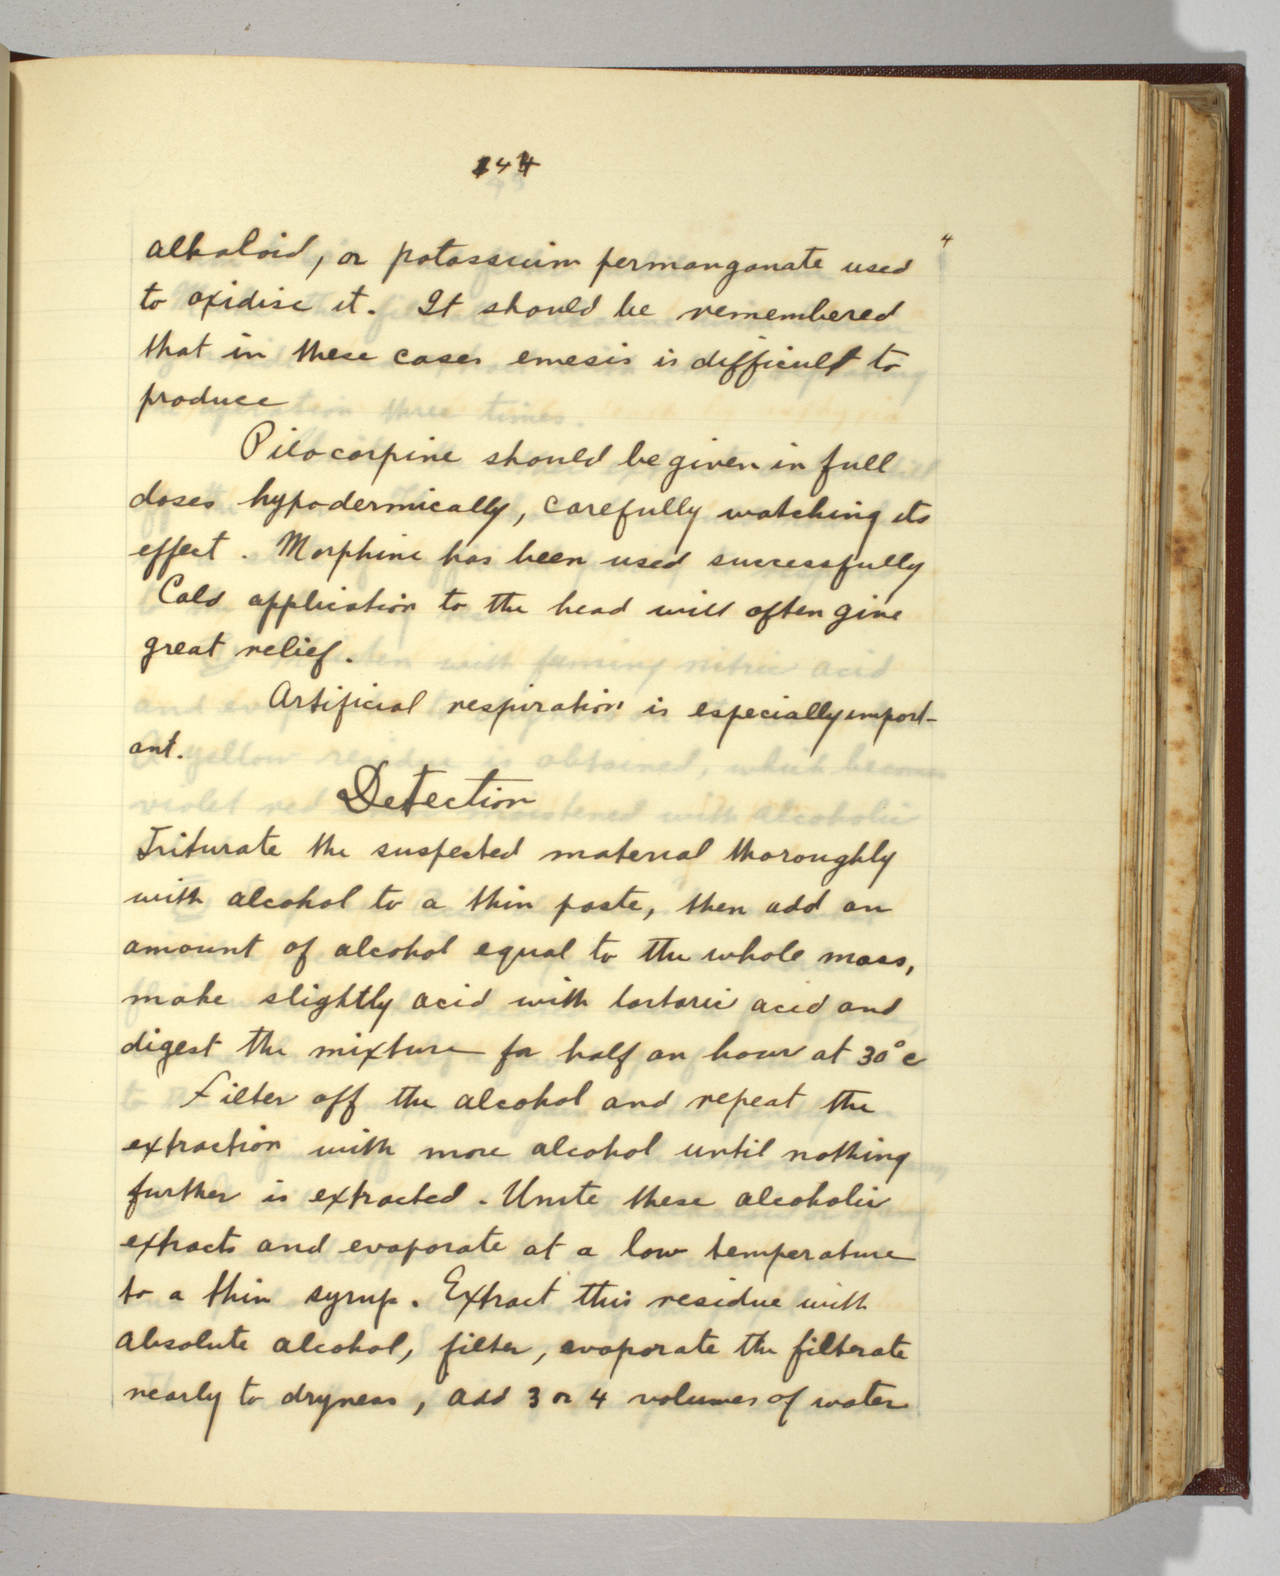 44
alkaloid, or potassium permanganate used
to oxidise it. It should be remembered
that in these cases emesis is difficult to
produce
Pilocarpine should be given in full
doses hypodermically, carefully watching its
effect. Morphine has been used successfully
Cold application to the head will often give
great relief.
Artificial respiration is especially import-
ant.
Detection
Triturate the suspected material thoroughly
with alcohol to a thin paste, then add an
amount of alcohol equal to the whole mass,
make slightly acid with tartaric acid and
digest the mixture for half an hour at 30°c
Filter off the alcohol and repeat the
extraction with more alcohol until nothing
further is extracted. Unite these alcoholic
extracts and evaporate at a low temperature
to a thin syrup. Extract this residue with
absolute alcohol, filter, evaporate the filterate
nearly to dryness, add 3 or 4 volumes of water